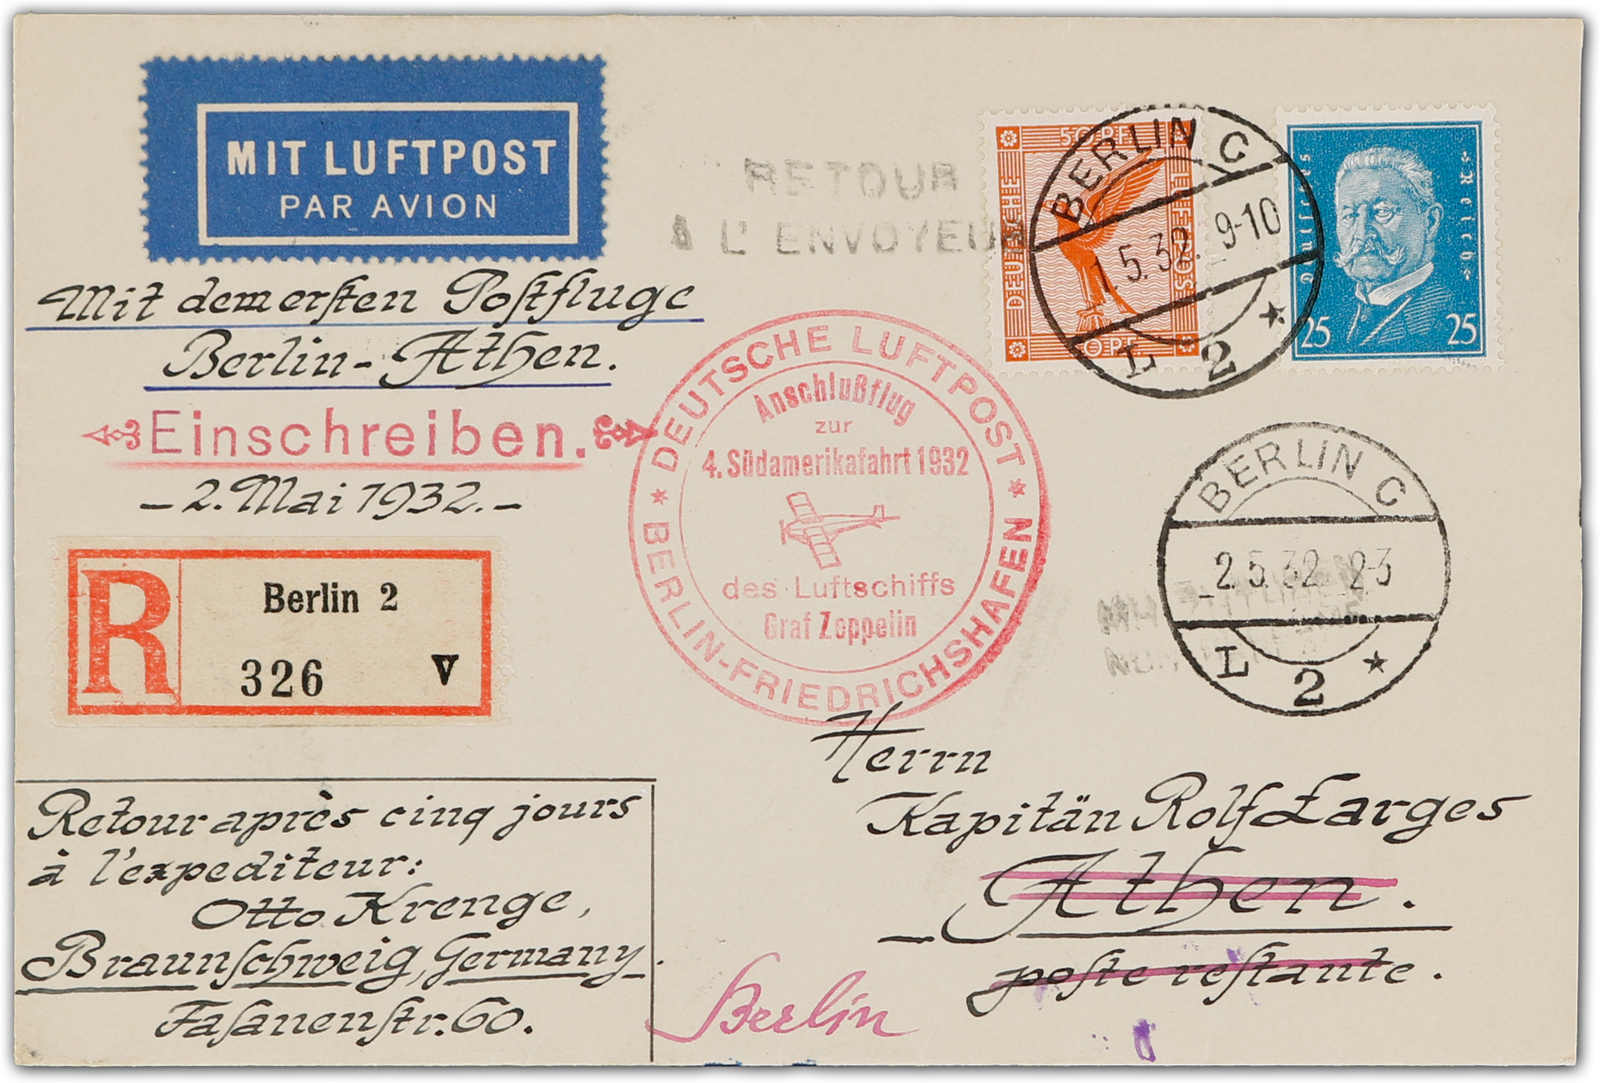 MIT LUFTPOST
PAR AVION
RETOUR
À L'ENVOYEUR
50 PF.
DEUTSCHE
50 PF.
BERLIN C
1.5.32. 9-10
L 2 *
Deutsches Reich
25 25
Mit dem ersten Postfluge
Berlin-Athen.
Einschreiben.
- 2. Mai 1932. -
R
Berlin 2
326 v
* DEUTSCHE LUFTPOST *
Anschlußflug
zur
4. Südamerikafahrt 1932
des Luftschiffs
Graf Zeppelin
BERLIN-FRIEDRICHSHAFEN
BERLIN C
2.5.32. 2-3
L 2 *
Herrn
Kapitän Rolf Larges
Athen.
poste restante.
Berlin
Retour après cinq jours
à l'expediteur:
Otto Krenge,
Braunschweig, Germany.
Fasanenstr. 60.